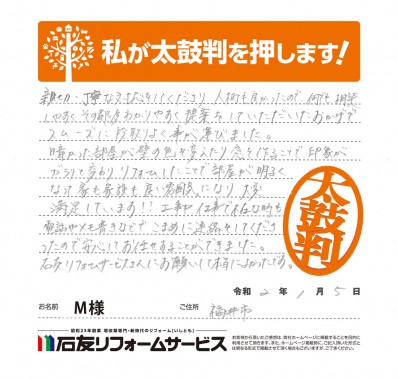 私が太鼓判を押します!
親切・丁寧な対応をしてくださり 人柄も良かったので 何でも相談
しやすく その都度わかりやすく 提案 していただいたおかげで
スムーズに 段取りよく 事が運びました。
暗かった部屋が壁の色を変えたり することで 印象が
ガラリと変わり リフォームしたことで 部屋が明るく
なって 家も家族も良い雰囲気になり 大変
満足しています!! 工事中 仕事で不在な時も
電話やメモ書きなどで こまめに連絡をしてくださ
ったので 安心してお任せすることができました。
石友リフォームサービスさんにお願いして本当によかったです。
太鼓判
令和 2 年 1 月 5 日
お名前 M様 ご住所 福井市
昭和23年創業 増改築専門・新時代のリフォーム[いしとも]
石友リフォームサービス
お客様から頂いたご感想は、弊社ホームページに掲載することを目的に
利用させて頂きます。また、ホームページ掲載時に、ご記入頂いた形式と
は異なる形式で掲載させて頂く場合もございますが、ご了承ください。